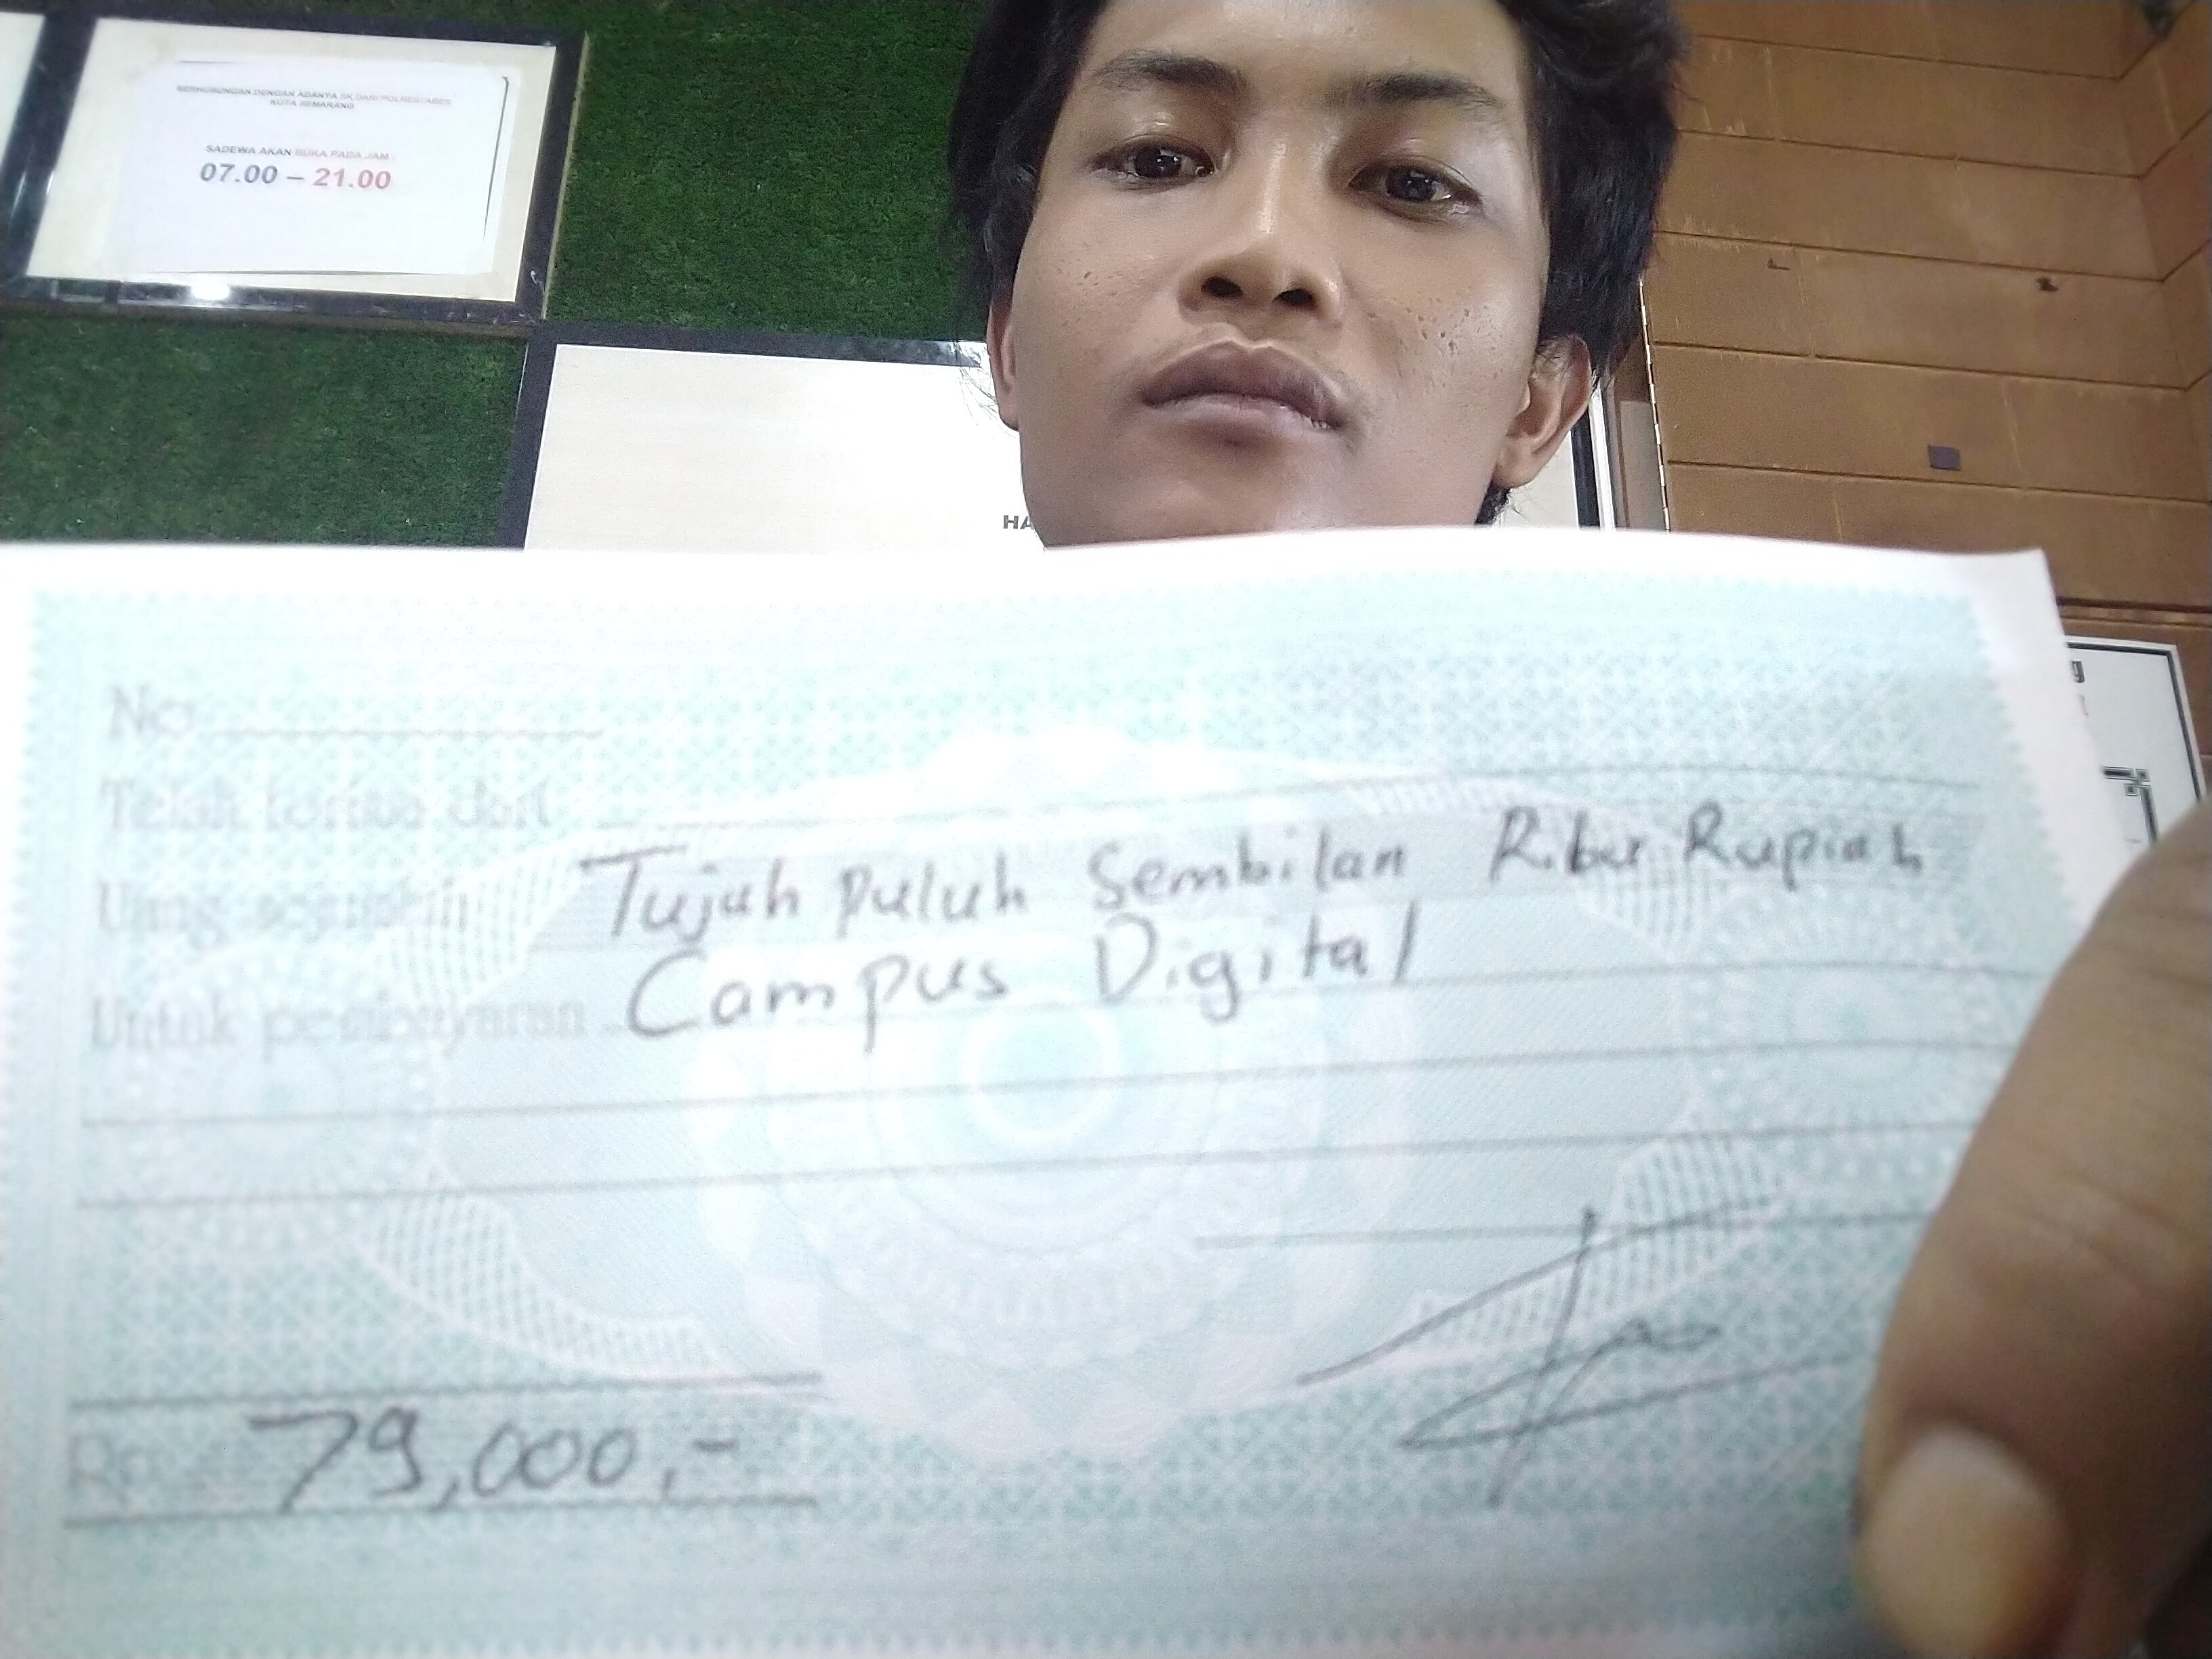 BERHUBUNGAN DENGAN ADANYA SK DARI POLRESTABES
KOTA SEMARANG
SADEWA AKAN BUKA PADA JAM :
07.00 – 21.00
HA
No
Telah terima dari
Uang sejumlah Tujuh puluh Sembilan Ribu Rupiah
Untuk pembayaran Campus Digital
Rp 79,000,-
g